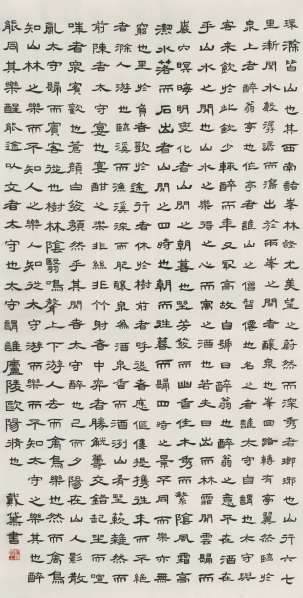 環滁皆山也其西南諸峯林壑尤美望之蔚然而深秀者瑯琊也山行六七
里漸聞水聲潺潺而瀉出於兩峯之間者釀泉也峯回路轉有亭翼然臨於
泉上者醉翁亭也作亭者誰山之僧智僊也名之者誰太守自謂也太守與
客來飲於此飲少輒醉而年又最高故自號曰醉翁也醉翁之意不在酒在
乎山水之間也山水之樂得之心而寓之酒也若夫日出而林霏開雲歸而
巖穴暝晦明變化者山間之朝暮也野芳發而幽香佳木秀而繁陰風霜高
潔水落而石出者山間之四時也朝而往暮而歸四時之景不同而樂亦無
窮也至於負者歌於塗行者休於樹前者呼後者應傴僂提攜往來而不絕
者滁人游也臨溪而漁溪深而魚肥釀泉為酒泉香而酒洌山肴野蔌雜然而
前陳者太守宴也宴酣之樂非絲非竹射者中弈者勝觥籌交錯起坐而諠
譁者眾賓歡也蒼顏白髮頹然乎其間者太守醉也已而夕陽在山人影散
亂太守歸而賓客從也樹林陰翳鳴聲上下游人去而禽鳥樂也然而禽鳥
知山林之樂而不知人之樂人知從太守游而樂而不知太守之樂其樂也醉
能同其樂醒能述以文者太守也太守謂誰廬陵歐陽脩也 戴黛書